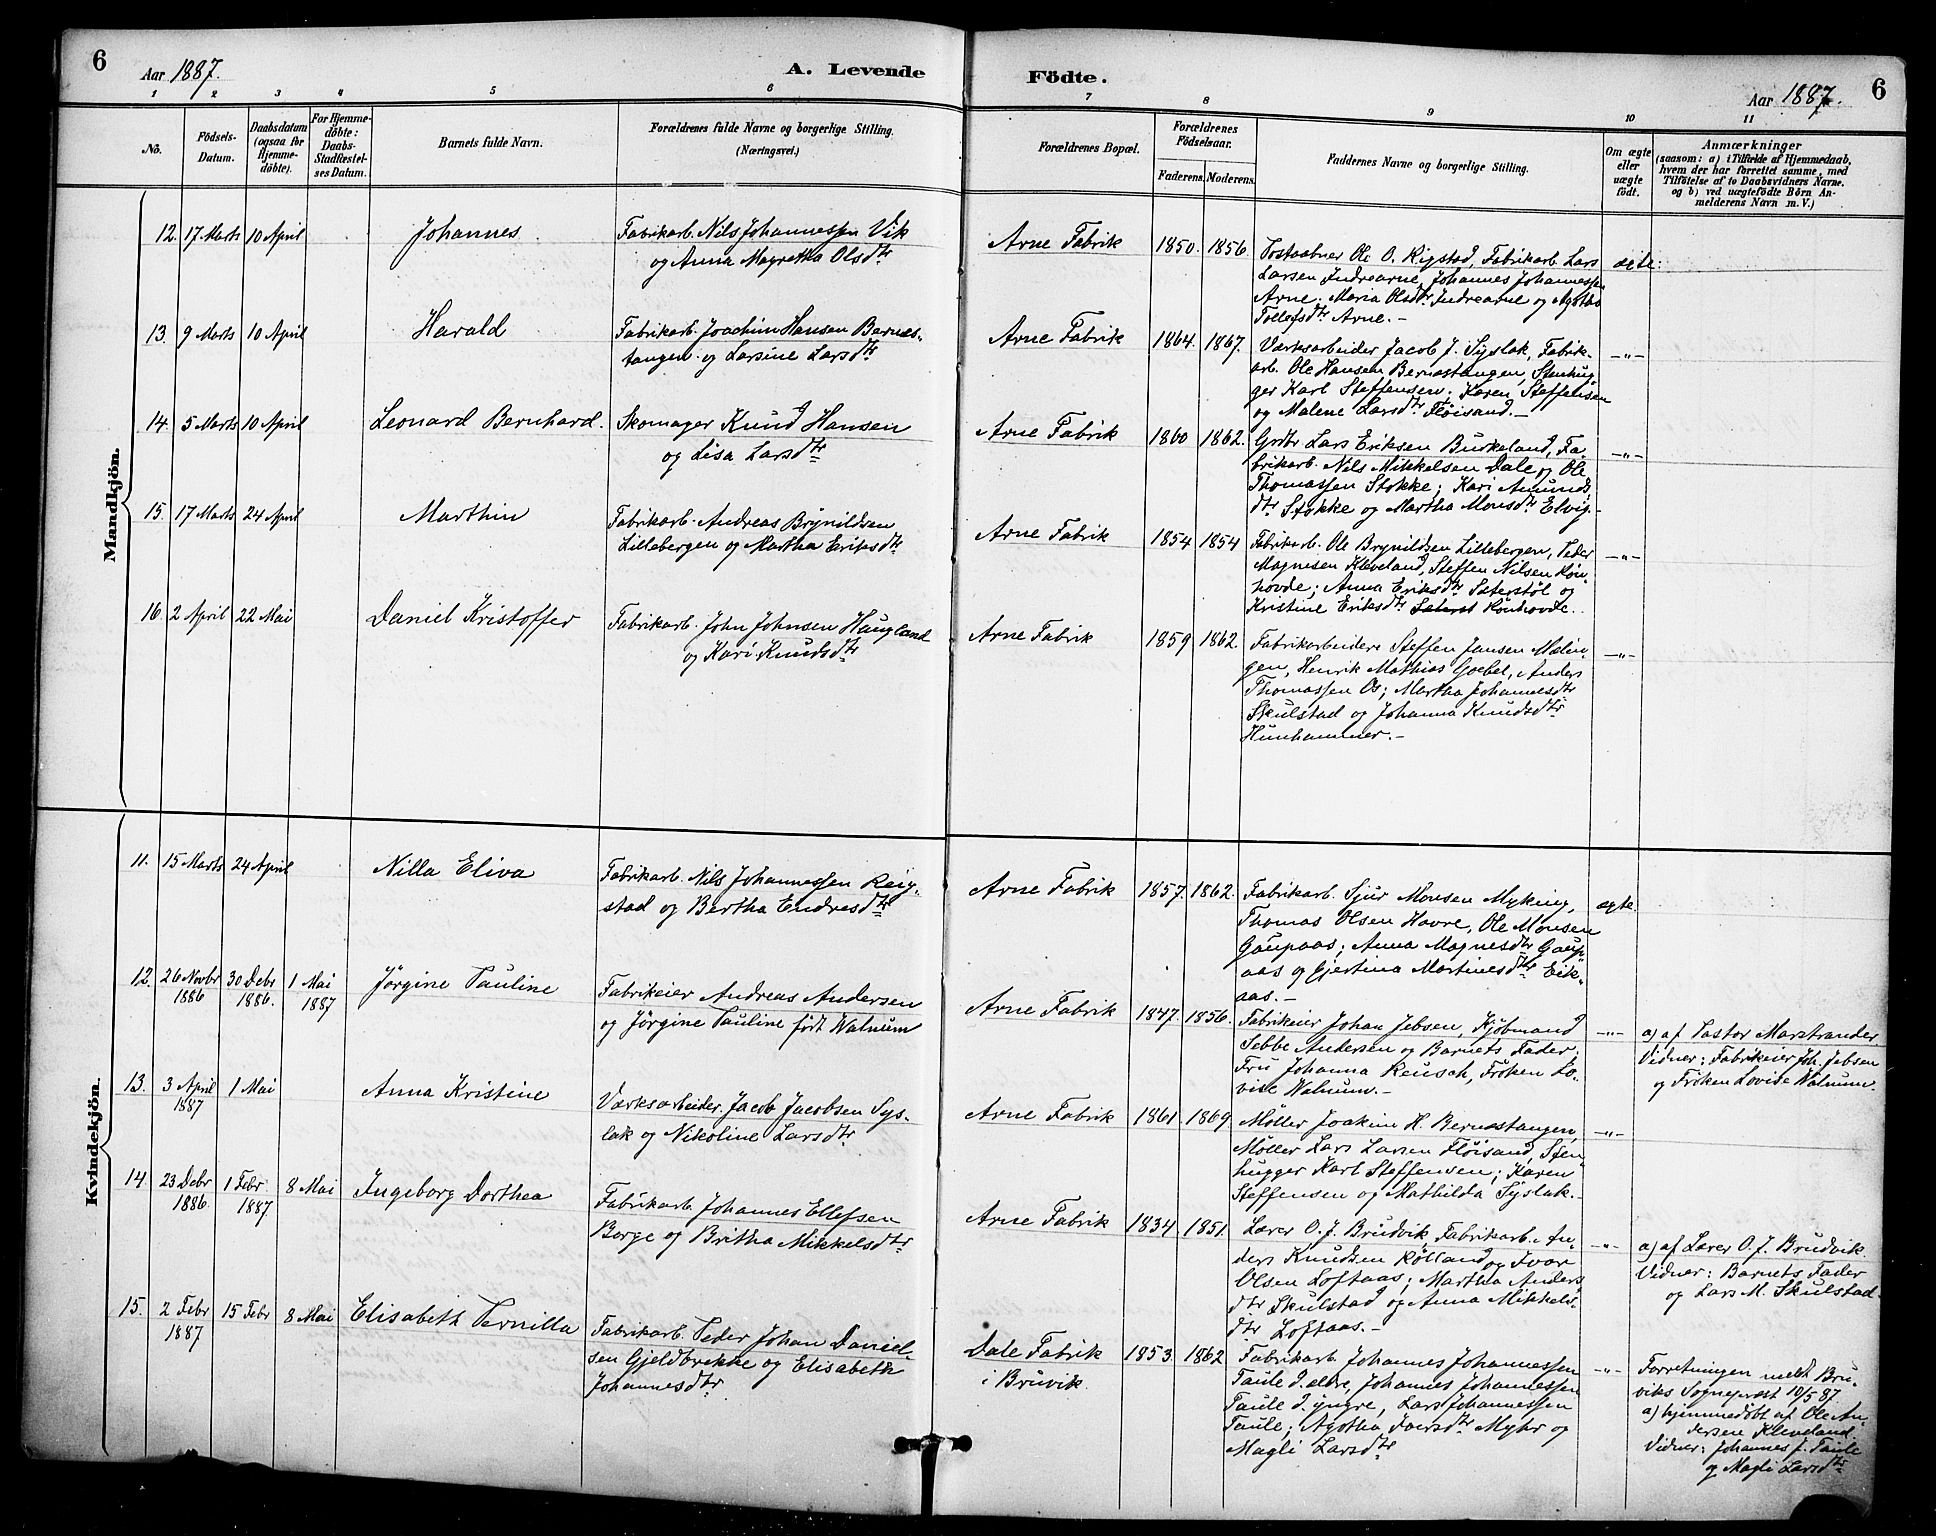 6
Aar 1887.
A. Levende
Födte.
Aar 1887.
6
1 2 3 4 5 6 7 8 9 10 11
No.
Födsels-
Datum.
Daabsdatum
(ogsaa for
Hjemme-
döbte).
For Hjemme-
döbte:
Daabs-
Stadfæstel-
ses Datum.
Barnets fulde Navn.
Forældrenes fulde Navne og borgerlige Stilling.
(Næringsvei.)
Forældrenes Bopæl.
Forældrenes
Födselsaar.
Faderens. Moderens.
Faddernes Navne og borgerlige Stilling.
Om ægte
eller
uægte
födt.
Anmærkninger
(saasom: a) i Tilfælde af Hjemmedaab,
hvem der har forrettet samme, med
Tilföielse af to Daabsvidners Navne.
og b) ved uægtefödte Börn An-
melderens Navn m. V.)
Mandkjön.
12. 17 Marts 10 April
Johannes
Fabrikarb. Nils Johannessen Vik
og Anna Magretha Olsdtr
Arne Fabrik 1850. 1856.
Postaabner Ole O. Rigstad, Fabrikarb. Lars
Larsen Indrearne, Johannes Johannessen
Arne. Maria Olsdtr Indrearne og Agatha
Tollefsdtr Arne. –
ægte.
13. 9 Marts 10 April
Harald
Fabrikarb. Joachim Hansen Bernæs-
tangen og Larsine Larsdtr
Arne Fabrik 1864. 1867.
Værksarbeider Jacob J. Syslak, Fabrik-
arb. Ole Hansen Bernæstangen, Stenhug-
ger Karl Steffensen; Karen Steffensen
og Malene Larsdtr Fløisand. –
–„–
14. 5 Marts 10 April
Leonard Bernhard.
Skomager Knud Hansen
og Lisa Larsdtr
Arne Fabrik 1860 1862.
Grdbr Lars Eriksen Burkeland, Fa-
brikarb. Nils Mikkelsen Dale og Ole
Thomassen Stokke; Kari Amunds-
dtr Stokke og Martha Monsdtr Elvig –
–„–
15. 17 Marts 24 April
Marthin
Fabrikarb. Andreas Brynildsen
Lillebergen og Martha Eriksdtr
Arne Fabrik 1854 1854
Fabrikarb. Ole Brynildsen Lillebergen, Peder
Magnesen Kleveland, Steffen Nilsen Røn-
hovde; Anna Eriksdtr Sæterstøl og
Kristine Eriksdtr Sæterst Rønhovde.
–„–
16. 2 April 22 Mai
Daniel Kristoffer
Fabrikarb. John Johnsen Haugland
og Kari Knudsdtr
Arne Fabrik 1859 1862.
Fabrikarbeidere Steffen Jansen Malin-
gen, Henrik Mathias Goebel, Anders
Thomassen Os; Martha Johannesdtr
Skulstad og Johanna Knudsdtr
Hunhammer. –
–„–
Kvindekjön.
11. 15 Marts 24 April
Nilla Eliva
Fabrikarb. Nils Johannessen Reig-
stad og Bertha Endresdtr
Arne Fabrik 1857. 1862.
Fabrikarb. Sjur Monsen Myking,
Thomas Olsen Havre, Ole Monsen
Gaupaas; Anna Magnesdtr Gaup-
aas og Gjertina Martinesdtr Eik-
aas. –
ægte.
12. 26 Novbr 30 Debr 1 Mai
1886 1886. 1887
Jørgine Pauline
Fabrikeier Andreas Andersen
og Jørgine Pauline født Walnum
Arne Fabrik 1847. 1856.
Fabrikeier Johan Jebsen, Kjøbmand
Sebbe Andersen og Barnets Fader,
Fru Johanna Reusch, Frøken Lo-
vise Walnum. –
–„–
a) af Pastor Marstrander
Vidner: Fabrikeier Joh. Jebsen
og Frøken Lovise Walnum.
13. 3 April 1 Mai
1887
Anna Kristine
Værksarbeider. Jacob Jacobsen Sys-
lak og Nikoline Larsdtr
Arne Fabrik 1861. 1869
Møller Joakim H. Bernæstangen,
Møller Lars Larsen Fløisand, Sten-
hugger Karl Steffensen; Karen
Steffensen og Mathilda Syslak. –
–„–
14. 23 Debr 1 Febr. 8 Mai
1886. 1887.
Ingeborg Dorthea
Fabrikarb. Johannes Ellefsen
Borge og Britha Mikkelsdtr
Arne Fabrik 1834 1851.
Lærer O. J. Brudvik, Fabrikarb. An-
ders Knudsen Rølland og Ivar
Olsen Loftaas; Martha Anders-
dtr Skulstad og Anna Mikkels-
dtr Loftaas. –
–„–
a) af Lærer O. J. Brudvik
Vidner: Barnets Fader
og Lars M. Skulstad.
15. 2 Febr 15 Febr 8 Mai
1887
Elisabeth Pernilla
Fabrikarb. Peder Johan Daniel-
sen Gjeldbrekke og Elisabeth
Johannesdtr.
Dale Fabrik 1853. 1862
i Bruvik.
Fabrikarb. Johannes Johannessen
Taule d. eldre, Johannes Johannessen
Taule d. yngre, Lars Johannessen
Taule; Agotha Iversdtr Myhr og
Magli Larsdtr
–„–
Forretningen meldt Bru-
viks Sogneprest 10/5 87.
a) hjemmedøbt af Ole An-
dersen Kleveland.
Vidner: Johannes J. Taule
og Magli Larsdtr